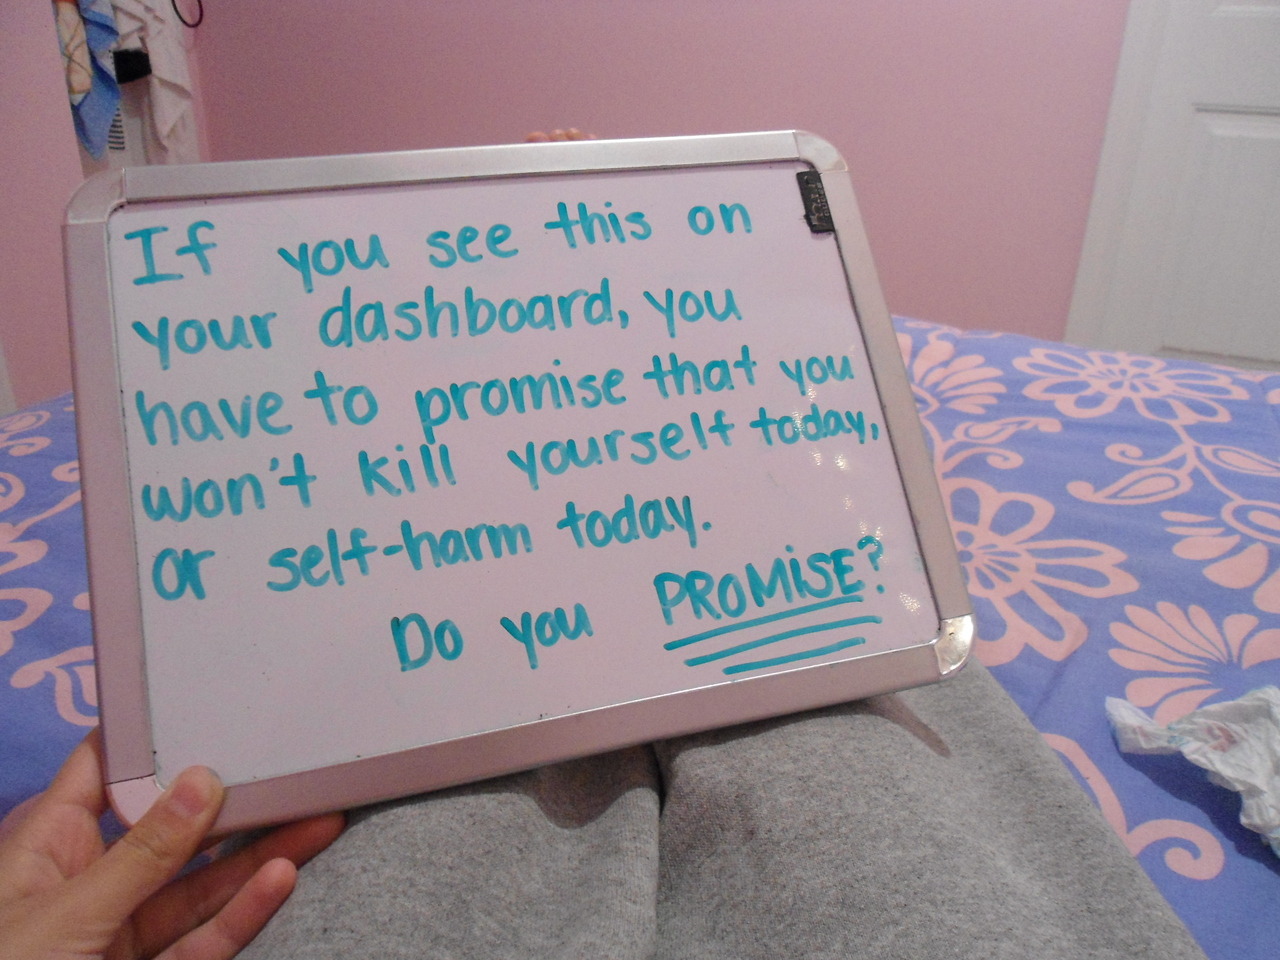 If you see this on
your dashboard, you
have to promise that you
won't kill yourself today,
or self-harm today.
Do you PROMISE?